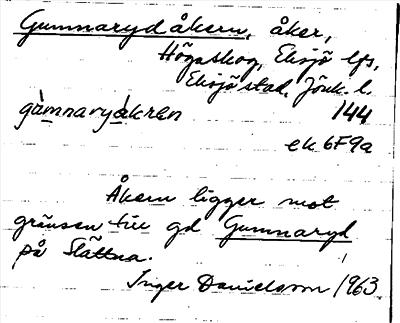 Gunnaryd åkern, åker,
Högaskog, Eksjö lfs,
Eksjö stad, Jönk. l.
144
ek 6F9a
Åkern ligger mot
gränsen till gd Gunnaryd
på Slättna.
Inger Danielsson 1963.